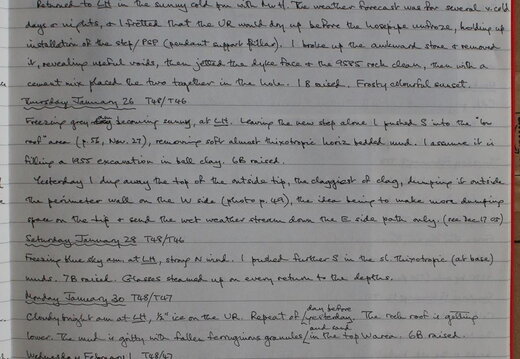 Returned to LH in the sunny cold pm with Muth. The weather forecast was for several v. cold
days & nights, & I fretted that the UR would dry up before the hosepipe unfroze, holding up
installation of the step/PSP (pendant support pillar). I broke up the awkward stone & removed
it, revealing useful voids, then jetted the dyke face & the 9585 rock clean, then with a
cement mix placed the two together in the hole. 1B raised. Frosty colourful sunset.
Thursday January 26 T48/T46
Freezing grey becoming sunny, at LH. Leaving the new step alone I pushed S into the "low
roof" area (p.56, Nov. 27), removing soft almost thixotropic horiz bedded mud. I assume it is
filling a 1955 excavation in ball clay. 6B raised.
Yesterday I dug away the top of the outside tip, the claggiest of clag, dumping it outside
the perimeter wall on the W side (photo p.49), the idea being to make more dumping
space on the tip & send the wet weather stream down the E side path only. (see Dec 17 05)
Saturday January 28 T48/T46
Freezing blue sky am at LH, strong N wind. I pushed further S in the sl. thixotropic (at base)
muds. 7B raised. Glasses steamed up on every return to the depths.
Monday January 30 T48/T47
Cloudy bright am at LH, ½" ice on the UR. Repeat of day before
yesterday. The rock roof is getting
lower. The mud is gritty with fallen ferruginous granules and sand in the top Warea. 6B raised.
Wednesday February 1 T48/47